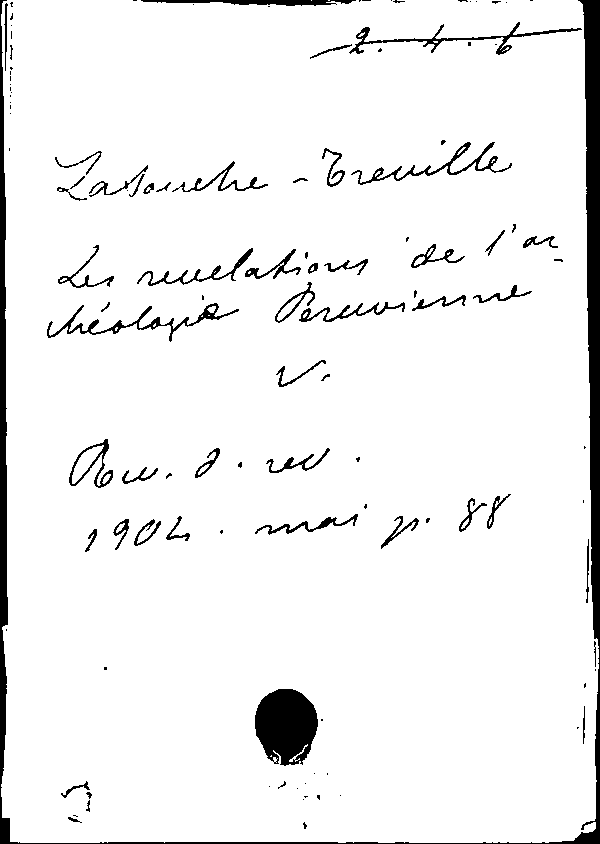 2. 4. 6
Latouche - Treville
Les revelations de l'ar-
chéologie Péruvienne
V.
Rev. d. rev.
1904. mai p. 88